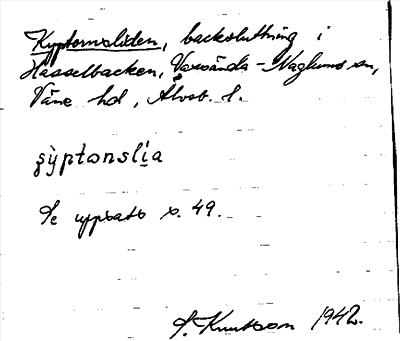 Kyptornsliden, backsluttning i
Hasselbacken, Vassända-Naglums sn,
Väne hd, Älvsb. l.
Se uppsats s. 49.
S. Knutsson 1942.